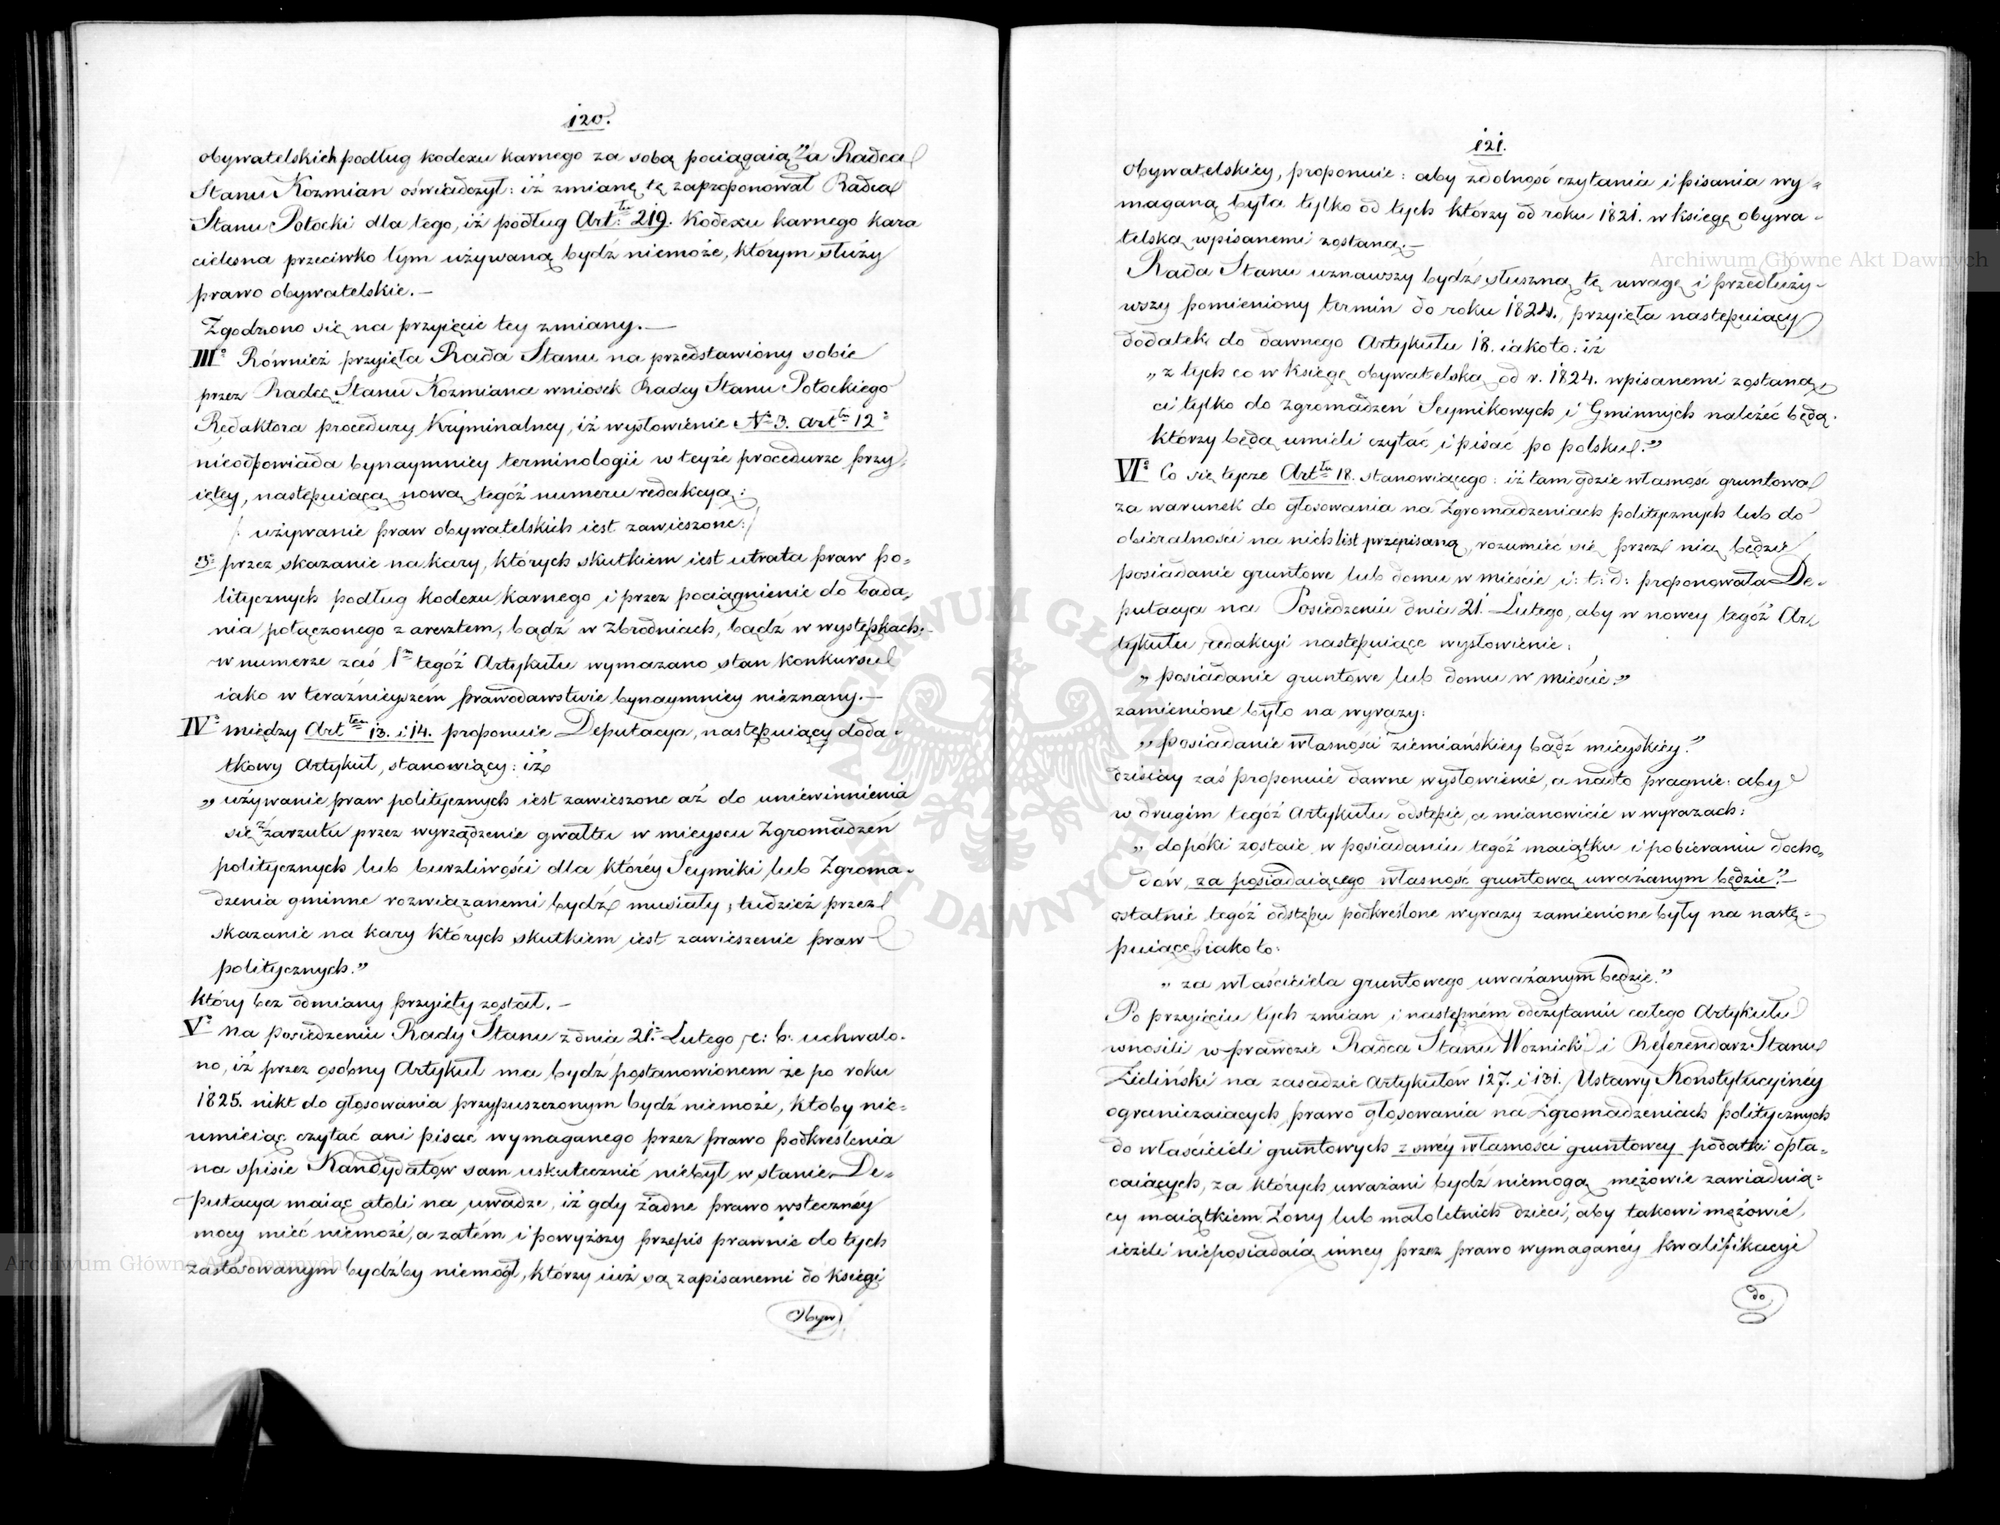 120.
obywatelskich podług kodexu karnego za sobą pociągaią" a Radca
Stanu Kozmian oświadczył: iż zmianę tę zaproponował Radca
Stanu Potocki dla tego, iż podług Art: 219. Kodexu karnego kara
cielesna przeciwko tym używaną bydź niemoże, którym służy
prawo obywatelskie.—
Zgodzono się na przyięcie tey zmiany.—
III° Również przyięła Rada Stanu na przedstawiony sobie
przez Radcę Stanu Kozmiana wniosek Radcy Stanu Potockiego
Redaktora procedury Kryminalney, iż wysłowienie N° 3. art 12°
nieodpowiada bynaymniey terminologii w teyże procedurze przy-
iętey, następuiącą nową tegóż numeru redakcyą:
/używanie praw obywatelskich iest zawieszone:/
3° przez skazanie na kary, których skutkiem iest utrata praw po-
litycznych podług kodexu karnego i przez pociągnienie do bada-
nia połączonego z aresztem, bądź w zbrodniach, bądź w występkach.—
w numerze zaś 1m tegóż Artykułu wymazano stan konkursu
iako w teraźnieyszém prawodawstwie bynaymniey nieznany.—
IV° między Art tem 13. i 14. proponuie Deputacya, następuiący doda-
tkowy Artykuł, stanowiący: iż
„używanie praw politycznych iest zawieszone aż do uniewinnienia
się z zarzutu przez wyrządzenie gwałtu w mieyscu Zgromadzeń
politycznych lub burzliwości dla któréy Seymiki lub Zgroma-
dzenia gminne rozwiązanemi bydź musiały; tudzież przez
skazanie na kary których skutkiem iest zawieszenie praw
politycznych."
który bez odmiany przyięty został.—
V° na posiedzeniu Rady Stanu z dnia 21° Lutego r: b: uchwalo-
no, iż przez osobny Artykuł ma bydź postanowionem że po roku
1825. nikt do głosowania przypuszczonym bydź niemoże, ktoby nie-
umieiąc czytać ani pisać wymaganego przez prawo podkreślenia
na spisie Kandydatów sam uskutecznić niebył w stanie De-
putacya maiąc atoli na uwadze, iż gdy żadne prawo wstecznéy
mocy mieć niemoże, a zatém i powyższy przepis prawnie do tych
zastosowanym bydźby niemógł, którzy iuż są zapisanemi do księgi
Obyw
121.
obywatelskiey, proponuie: aby zdolność czytania i pisania wy-
maganą była tylko od tych którzy od roku 1821. w księgę obywa-
telską wpisanemi zostaną.—
Rada Stanu uznawszy bydź słuszną tę uwagę i przedłuży-
wszy pomieniony termin do roku 1824., przyięła następuiący
dodatek do dawnego Artykułu 18. iakoto: iż
„z tych co w księgę obywatelską od r. 1824. wpisanemi zostaną,
ci tylko do zgromadzeń Seymikowych i Gminnych należeć będą.
którzy będą umieli czytać i pisać po polsku."
VI° Co się tycze Artłu 18. stanowiącego: iż tam gdzie własność gruntowa
za warunek do głosowania na Zgromadzeniach politycznych lub do
obieralności na nich iest przepisaną, rozumieć się przez nią będzie
posiadanie gruntowe lub domu w mieście i: t: d: proponowała De-
putacya na Posiedzeniu dnia 21. Lutego, aby w nowey tegóż Ar-
tykułu redakcyi następuiące wysłowienie:
„posiadanie gruntowe lub domu w mieście"
zamienione było na wyrazy:
„posiadanie własności ziemiańskiey bądź mieyskiey."
dzisiay zaś proponuie dawne wysłowienie, a nadto pragnie: aby
w drugim tegóż Artykułu odstępie, a mianowicie w wyrazach:
„dopóki zostaie w posiadaniu tegóż maiątku i pobieraniu docho-
dów, za posiadaiącego własność gruntową uważanym będzie."
ostatnie tegóż odstępu podkreślone wyrazy zamienione były na nastę-
puiące iakoto:
„za właściciela gruntowego uważanym będzie."
Po przyięciu tych zmian i następném odczytaniu całego Artykułu
wnosili wprawdzie Radca Stanu Woznicki i Referendarz Stanu
Zieliński na zasadzie Artykułów 127. i 131. Ustawy Konstytucyinéy
ograniczaiących prawo głosowania na Zgromadzeniach politycznych
do właścicieli gruntowych z swéy własności gruntowey podatki opła-
caiących, za których uważani bydź niemogą mężowie zawiaduią-
cy maiątkiem Żony lub małoletnich dzieci, aby takowi mężowie,
ieżeli nieposiadaią inney przez prawo wymaganéy kwalifikacyi
do
Archiwum Główne Akt Dawnych
Archiwum Główne Akt Dawnych
ARCHIWUM GŁÓWNE AKT DAWNYCH